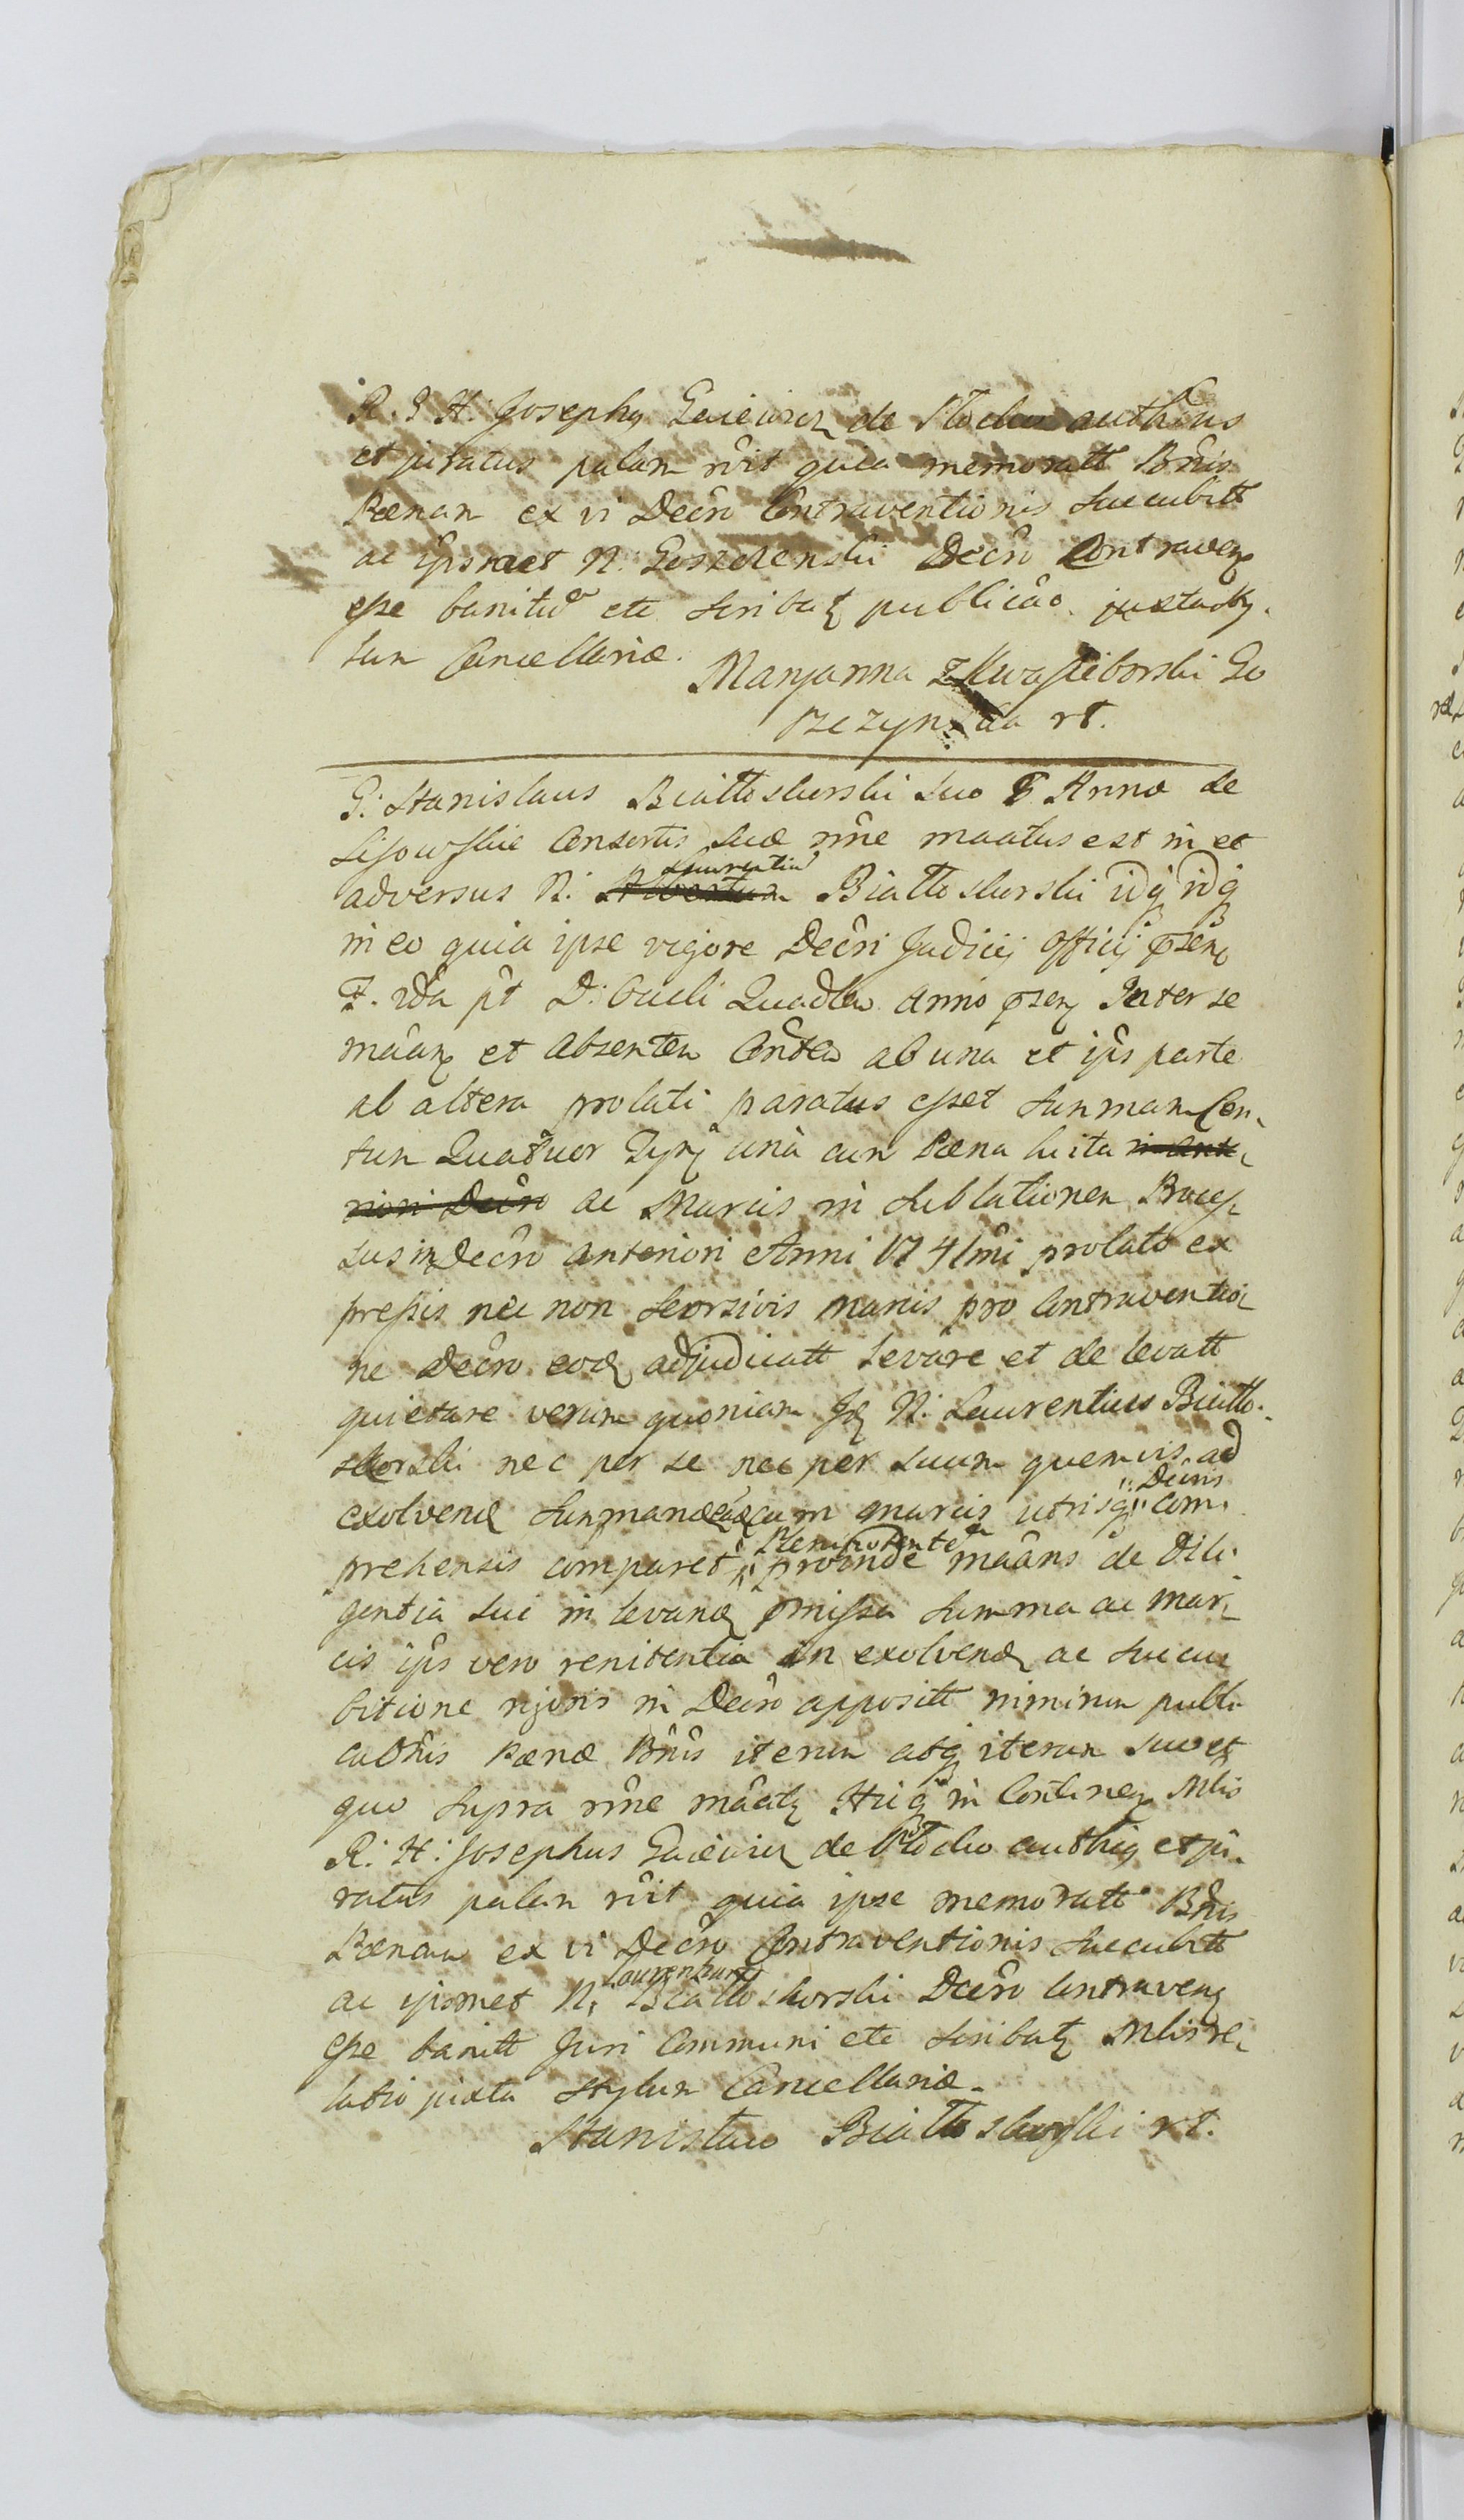 R. J H: Josephus Gaiewicz de Plocko authēus
et juratus palam rūit quia memoratt Bn̄is
Pœnam ex vi Decr̄o Contraventionis Succubitt
ac ip̄smet N: Decr̄o Contraven
esse banitū etc Scribat publicāo. juxta sty-
lum Cancellariæ.
Maryanna z Kwasieborski Go
rt.
G: Stanislaus Biallo skorski suo & Annæ de
Lisowskie Consortis suæ nn̄e maatus est in et
adversus N: Laurentiū Biallo skorski idq idq
in eo quia ipse vigore Decr̄i Judicij officij p̄sen
F. p̄t D: Oculi Quadla anno p̄sen Inter se
māan et absentem ab una et ip̄s parte
ab altera prolati paratus esset Summam Cen-
tum Quatuor Tyn unà cum Pœna luita
ac Marcis in Sublationem Proces-
sus in Decr̄o anteriori Anni 1741mi prolato ex
pressis nec non Seorsivis marcis pro Contraventio-
ne Decr̄o eod adjudicatt Levare et de levatt
quietare verum quoniam Id N: Laurentius Biallo-
skorski nec per se nec per suum quemvis ad
Decr̄is
exolvend Summam eand cum marcis utrisq com-
Plenipotentem
prehensis comparet proinde māans de Dili-
gentia sui in levand p̄missa Summa ac Mar-
cis ip̄s vero renitentia in exolvend ac succu
bitione rigoris in Decr̄o appositt nimirum publi
catōnis Pœnæ Bn̄is iterum atq iterum suo et
quo supra nn̄e māat Hicq in Contineñ Mlis
R: H: Josephus Gaiewicz de Plocko authēus et ju-
ratus palam rūit quia ipse memoratt Bn̄is
Pœnam ex vi Decr̄o Contraventionis Succubitt
Laurentium
ac ipsmet N: Biallo skorski Decr̄o Contraven
esse banitt Juri Communi etc Scribat Mlis re-
latio juxta Stylum Cancellariæ.
Stanisław Biallo skorski rt.